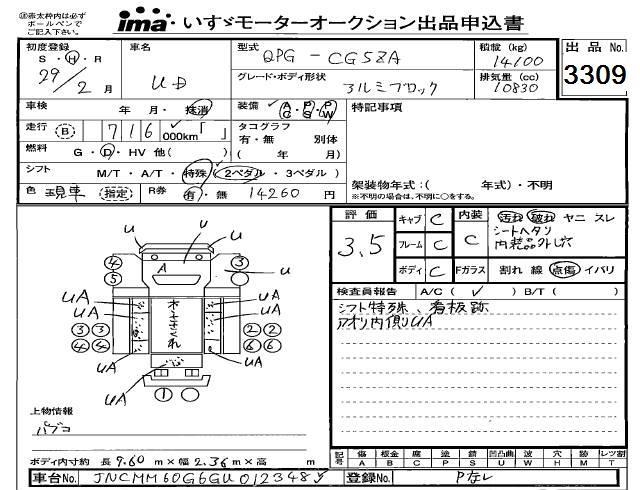 ※赤太枠内は必ず
ボールペンで
ご記入下さい。
ima・いすゞモーターオークション出品申込書
初度登録 S・H・R 29/2月
車名 UD
型式 QPG-CG5ZA
グレード・ボディ形状 アルミブロック
積載(kg) 14100
排気量(cc) 10830
出品No. 3309
車検 年 月・抹消
装備 AC PG PW
特記事項
走行 (B) 716 000km「 」
タコグラフ 有・無 別体 ( 年 月)
燃料 G・D・HV 他( )
シフト M/T・A/T・特殊(2ペダル・3ペダル)
架装物年式:( 年式)・不明
※不明の場合は、不明に○をする。
色 現車 (指定)
R券 有・無 14260円
評価 3.5
キャブ C
フレーム C
ボディ C
内装 C
Fガラス
汚れ 破れ ヤニ スレ
シートヘタリ
割れ 線 点傷 イバリ
検査員報告 A/C(✓) B/T( )
シフト特殊、看板跡
アオリ内側UA
U
U
U
U
A
④
⑤
③
UA
UA
UA
UA
③③
④④
②②
⑥⑥
UA
UA
UA
①
上物情報
パブコ
ボディ内寸約 長 9.60 m×幅 2.36 m×高 m
記号 傷 板金 腐 塗 錆 凹凸曲 波 穴 跡 レンズ割
A B C P S U W H M T
車台No. JNCMM60G6GU012348
登録No.